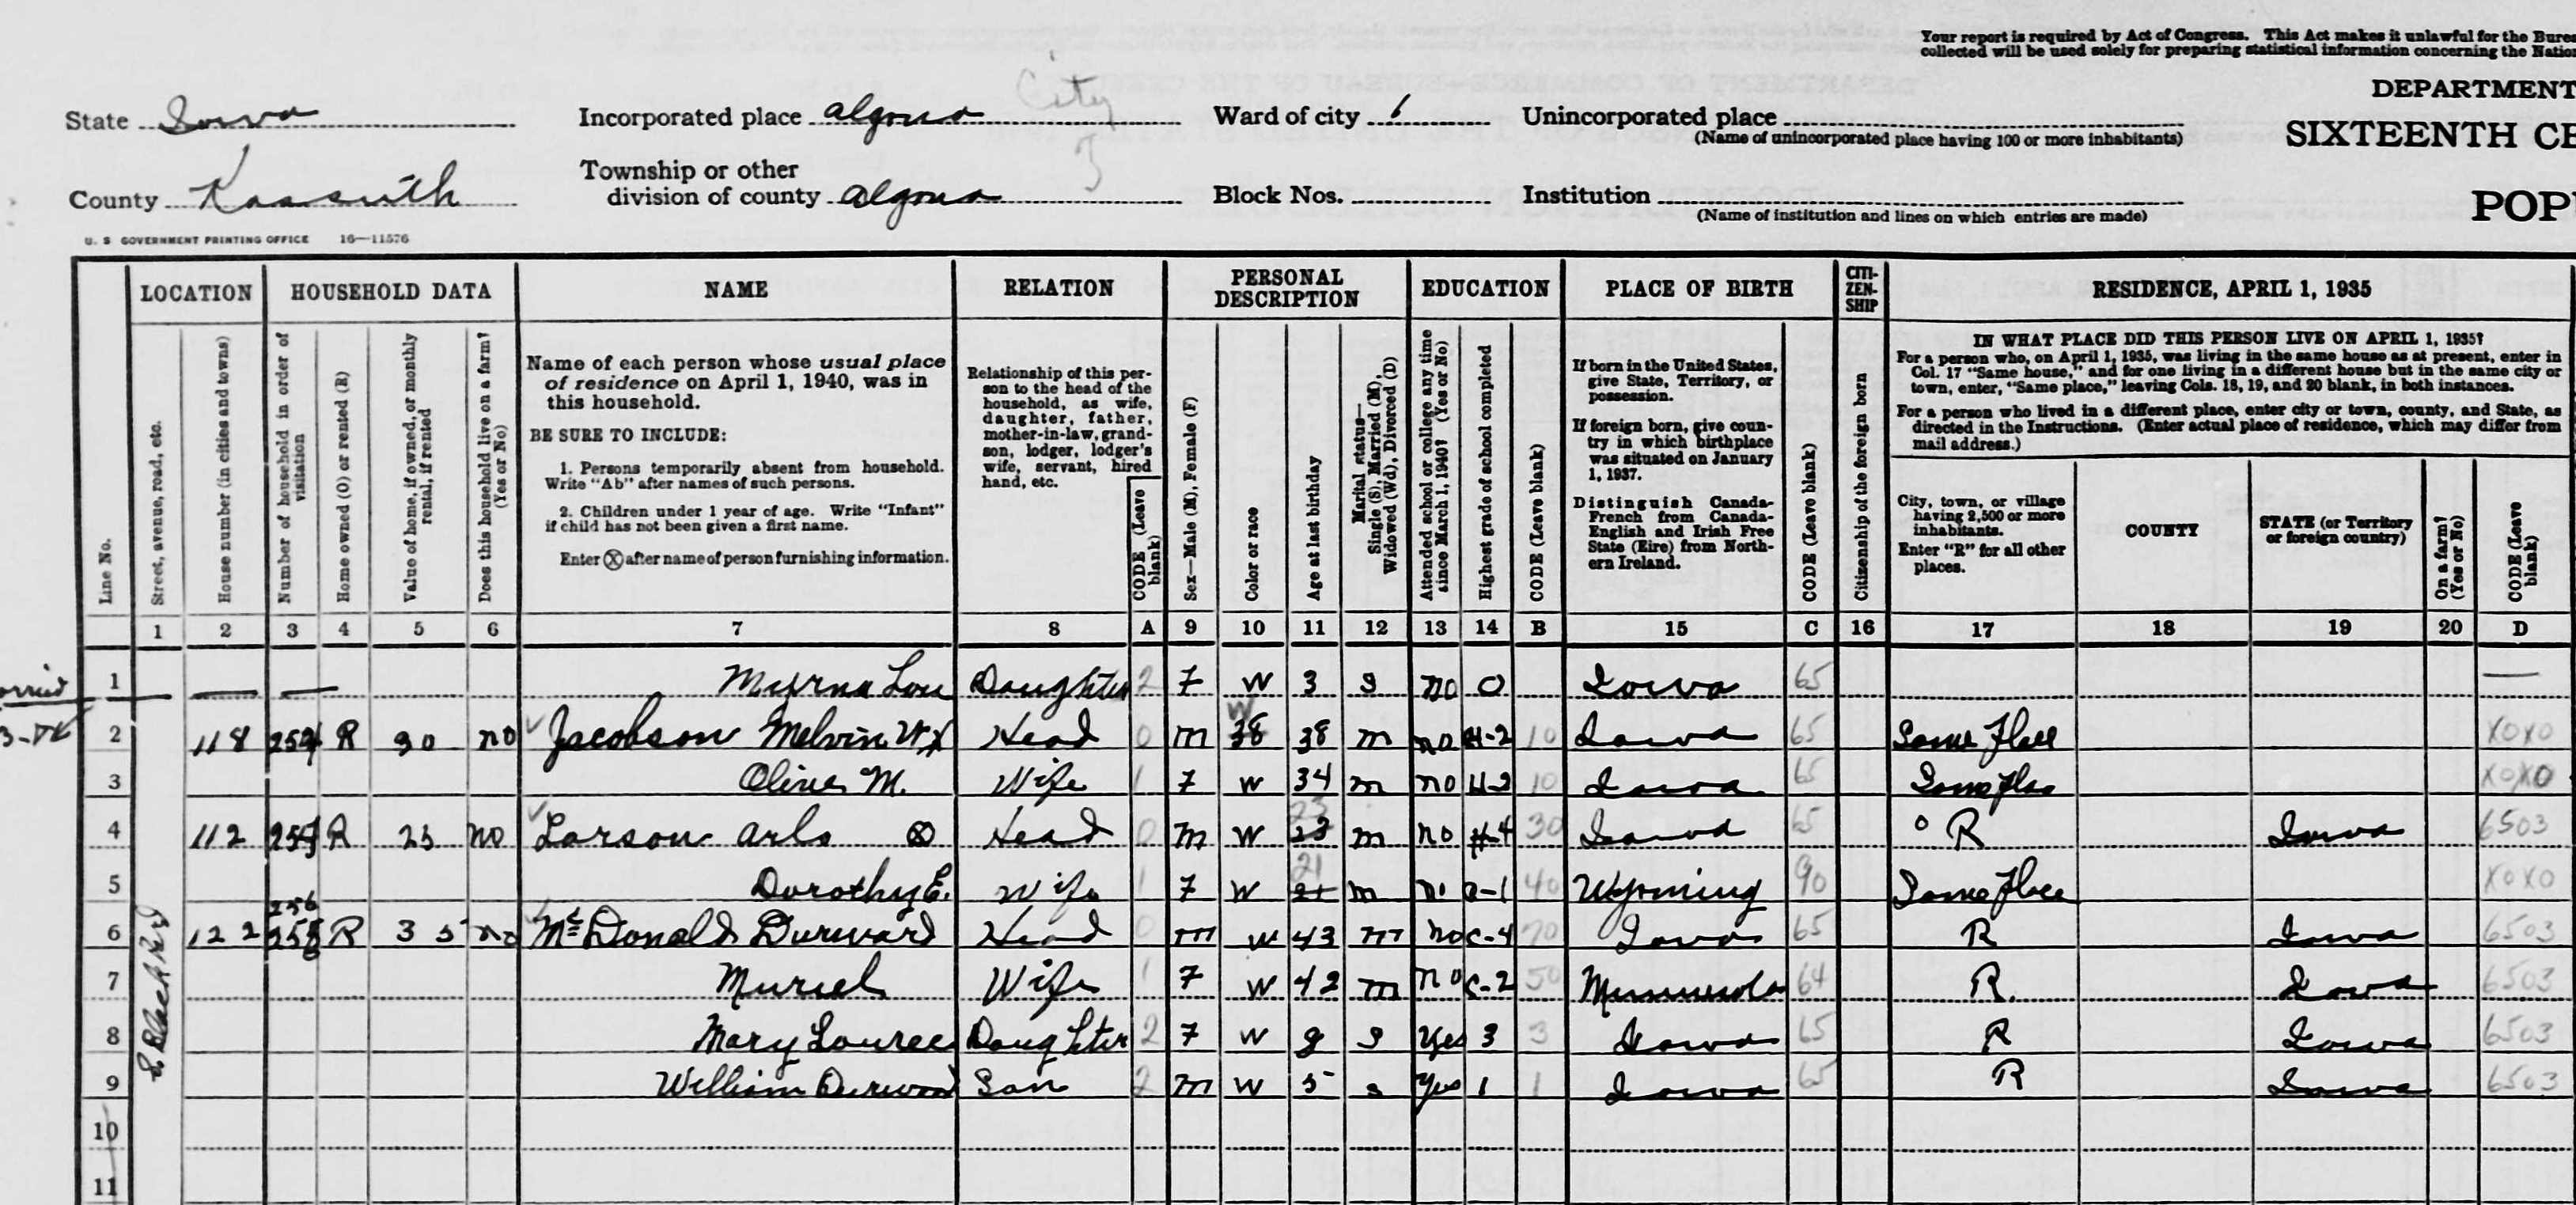 Your report is required by Act of Congress. This Act makes it unlawful for the Bure
collected will be used solely for preparing statistical information concerning the Natio
DEPARTMENT
SIXTEENTH CE
POP
State Iowa
Incorporated place Algona City
Ward of city 1
Unincorporated place
(Name of unincorporated place having 100 or more inhabitants)
County Kossuth
Township or other
division of county Algona 3
Block Nos.
Institution
(Name of institution and lines on which entries are made)
U. S GOVERNMENT PRINTING OFFICE 16—11576
LOCATION HOUSEHOLD DATA NAME RELATION PERSONAL DESCRIPTION EDUCATION PLACE OF BIRTH CITI-ZEN-SHIP RESIDENCE, APRIL 1, 1935
Line No.
Street, avenue, road, etc.
House number (in cities and towns)
Number of household in order of visitation
Home owned (O) or rented (R)
Value of home, if owned, or monthly rental, if rented
Does this household live on a farm? (Yes or No)
Name of each person whose usual place
of residence on April 1, 1940, was in
this household.
BE SURE TO INCLUDE:
1. Persons temporarily absent from household.
Write "Ab" after names of such persons.
2. Children under 1 year of age. Write "Infant"
if child has not been given a first name.
Enter Ⓧ after name of person furnishing information.
Relationship of this per-
son to the head of the
household, as wife,
daughter, father,
mother-in-law, grand-
son, lodger, lodger's
wife, servant, hired
hand, etc.
CODE (Leave blank)
Sex—Male (M), Female (F)
Color or race
Age at last birthday
Marital status—
Single (S), Married (M),
Widowed (Wd), Divorced (D)
Attended school or college any time
since March 1, 1940? (Yes or No)
Highest grade of school completed
CODE (Leave blank)
If born in the United States,
give State, Territory, or
possession.
If foreign born, give coun-
try in which birthplace
was situated on January
1, 1937.
Distinguish Canada-
French from Canada-
English and Irish Free
State (Eire) from North-
ern Ireland.
CODE (Leave blank)
Citizenship of the foreign born
IN WHAT PLACE DID THIS PERSON LIVE ON APRIL 1, 1935?
For a person who, on April 1, 1935, was living in the same house as at present, enter in
Col. 17 "Same house," and for one living in a different house but in the same city or
town, enter, "Same place," leaving Cols. 18, 19, and 20 blank, in both instances.
For a person who lived in a different place, enter city or town, county, and State, as
directed in the Instructions. (Enter actual place of residence, which may differ from
mail address.)
City, town, or village
having 2,500 or more
inhabitants.
Enter "R" for all other
places.
COUNTY
STATE (or Territory
or foreign country)
On a farm? (Yes or No)
CODE (Leave blank)
1 2 3 4 5 6 7 8 A 9 10 11 12 13 14 B 15 C 16 17 18 19 20 D
1 Myrna Lou Daughter 2 F W 3 S no 0 Iowa 65 —
2 118 254 R 30 no Jacobson Melvin W. X Head 0 M W 38 38 M no H-2 10 Iowa 65 Same Place X0X0
3 Olive M. Wife 1 F W 34 M no H-2 10 Iowa 65 Same Pla X0X0
4 112 255 R 25 no Larson Arlo Ⓧ Head 0 M W 23 23 M no H-4 30 Iowa 65 R Iowa 6503
5 Dorothy E. Wife 1 F W 21 21 M no C-1 40 Wyoming 90 Same Place X0X0
256
6 122 R 35 no McDonald Durward Head 0 M W 43 M no C-4 70 Iowa 65 R Iowa 6503
7 Muriel Wife 1 F W 42 M no C-2 50 Minnesota 64 R. Iowa 6503
8 Mary Louree Daughter 2 F W 9 S Yes 3 3 Iowa 65 R Iowa 6503
9 William Durwood Son 2 M W 5 S Yes 1 1 Iowa 65 R Iowa 6503
10
11